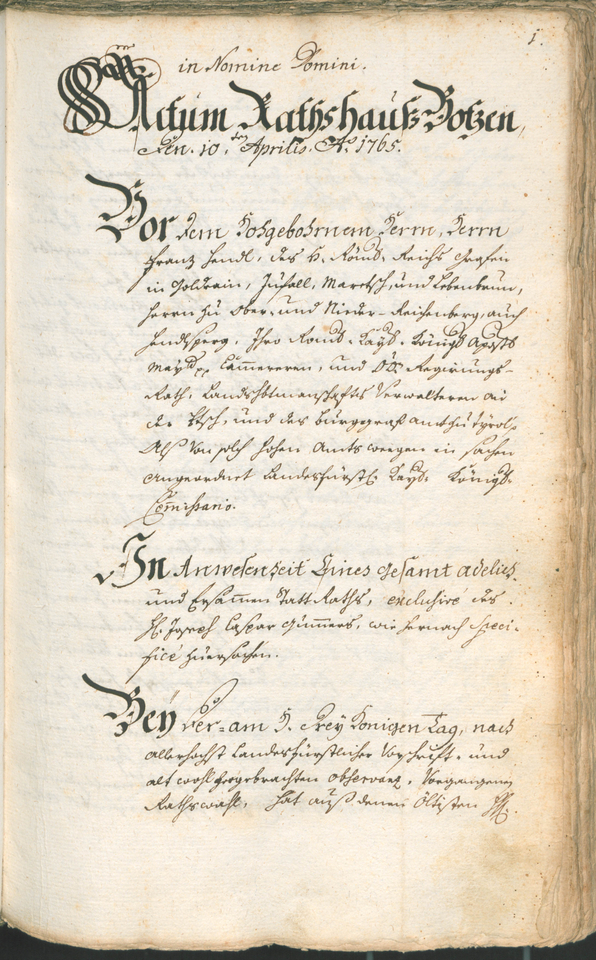 1.
in Nomine Domini.
Actum Rathshauß Botzen,
Den. 10.ten Aprilis. Ao. 1765.
Vor dem Hochgebohrnem Herrn, Herrn
Franz Hendl, des H. Röm. Reichs Grafen
in Goldrain, Jufall, Maretsch, und Lebenbrun,
Herrn zu Ober- und Nieder-Reichenberg, auch
Ihro Röm. Kays. Königl. Apost.
May. Cammereren, und OÖ. Regierungs-
Rath, Landshbtmanschafts Verwalteren an
der Etsch, und des Burggraf Amts zu Tyrol,
Als von solch hohen Amts weegen in sachen
angeordnet Landesfürstl. Kays. Königl.
Commissario.
In Anwesenheit Eines gesamt adelich
und Ersamen Statt Raths, exclusivé des
H. Joseph Caspar Gummers, wie hernach speci-
ficé
Bey der am H. Drey Königen Tag, nach
allerhöchst Landesfürstlicher Vorschrift, und
alt wohl hergebrachten observanz, Vorgangenen
Rathswahl, hat auß denen Eltisten HH.